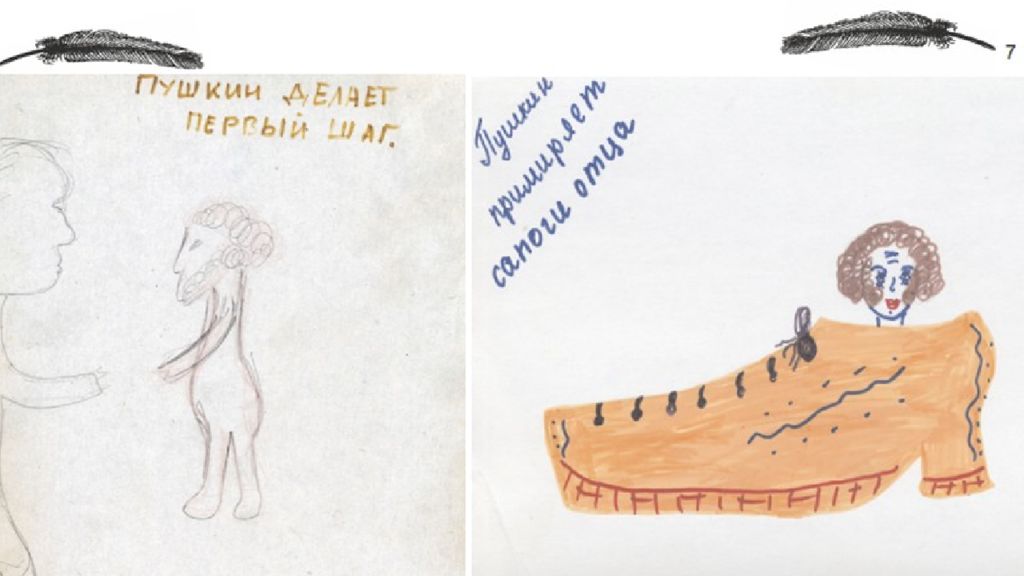 7
ПУШКИН ДЕЛАЕТ
ПЕРВЫЙ ШАГ.
Пушкин
примиряет
сапоги отца